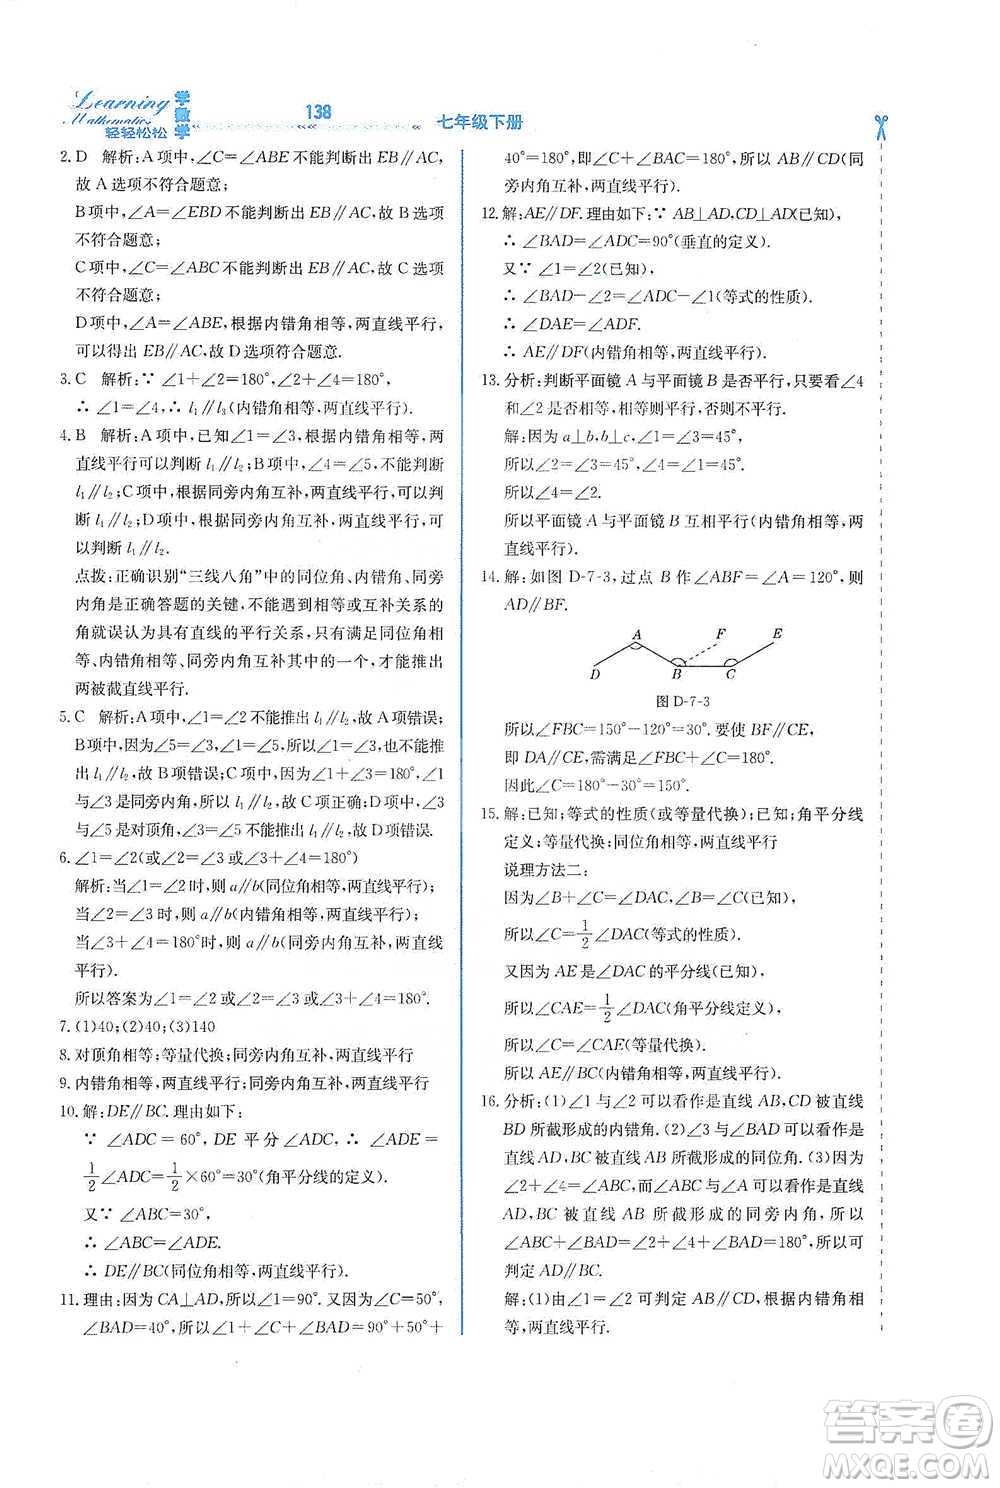 Learning
Mathematics
轻轻松松
学数学
138
七年级下册
2. D 解析:A项中,∠C=∠ABE不能判断出EB∥AC,
故A选项不符合题意;
B项中,∠A=∠EBD不能判断出EB∥AC,故B选项
不符合题意;
C项中,∠C=∠ABC不能判断出EB∥AC,故C选项
不符合题意;
D项中,∠A=∠ABE,根据内错角相等,两直线平行,
可以得出EB∥AC,故D选项符合题意.
3. C 解析:∵ ∠1+∠2=180°,∠2+∠4=180°,
∴ ∠1=∠4,∴ l₁∥l₃(内错角相等,两直线平行).
4. B 解析:A项中,已知∠1=∠3,根据内错角相等,两
直线平行可以判断l₁∥l₂;B项中,∠4=∠5,不能判断
l₁∥l₂;C项中,根据同旁内角互补,两直线平行,可以判
断l₁∥l₂;D项中,根据同旁内角互补,两直线平行,可
以判断l₁∥l₂.
点拨:正确识别“三线八角”中的同位角、内错角、同旁
内角是正确答题的关键,不能遇到相等或互补关系的
角就误认为具有直线的平行关系,只有满足同位角相
等、内错角相等、同旁内角互补中的一个,才能推出
两被截直线平行.
5. C 解析:A项中,∠1=∠2不能推出l₁∥l₂,故A项错误;
B项中,因为∠5=∠3,∠1=∠5,所以∠1=∠3,也不能推
出l₁∥l₂,故B项错误;C项中,因为∠1+∠3=180°,∠1
与∠3是同旁内角,所以l₁∥l₂,故C项正确;D项中,∠3
与∠5是对顶角,∠3=∠5不能推出l₁∥l₂,故D项错误.
6. ∠1=∠2(或∠2=∠3或∠3+∠4=180°)
解析:当∠1=∠2时,则a∥b(同位角相等,两直线平行);
当∠2=∠3时,则a∥b(内错角相等,两直线平行);
当∠3+∠4=180°时,则a∥b(同旁内角互补,两直线
平行).
所以答案为∠1=∠2或∠2=∠3或∠3+∠4=180°.
7. (1)40;(2)40;(3)140
8. 对顶角相等;等量代换;同旁内角互补,两直线平行
9. 内错角相等,两直线平行;同旁内角互补,两直线平行
10. 解:DE∥BC.理由如下:
∵ ∠ADC=60°,DE平分∠ADC,∴ ∠ADE=
1/2∠ADC=1/2×60°=30°(角平分线的定义).
又∵ ∠ABC=30°,
∴ ∠ABC=∠ADE.
∴ DE∥BC(同位角相等,两直线平行).
11. 理由:因为CA⊥AD,所以∠1=90°.又因为∠C=50°,
∠BAD=40°,所以∠1+∠C+∠BAD=90°+50°+
40°=180°,即∠C+∠BAC=180°,所以AB∥CD(同
旁内角互补,两直线平行).
12. 解:AE∥DF.理由如下:∵ AB⊥AD,CD⊥AD(已知),
∴ ∠BAD=∠ADC=90°(垂直的定义).
又∵ ∠1=∠2(已知),
∴ ∠BAD-∠2=∠ADC-∠1(等式的性质).
∴ ∠DAE=∠ADF.
∴ AE∥DF(内错角相等,两直线平行).
13. 分析:判断平面镜A与平面镜B是否平行,只要看∠4
和∠2是否相等,相等则平行,否则不平行.
解:因为a⊥b,b⊥c,∠1=∠3=45°,
所以∠2=45°,∠4=∠3=45°,
所以∠4=∠2.
所以平面镜A与平面镜B互相平行(内错角相等,两
直线平行).
14. 解:如图D-7-3,过点B作∠ABF=∠A=120°,则
AD∥BF.
A F E
D B C
图D-7-3
所以∠FBC=150°-120°=30°.要使BF∥CE,
即DA∥CE,需满足∠FBC+∠C=180°,
因此∠C=180°-30°=150°.
15. 解:已知;等式的性质(或等量代换);已知;角平分线
定义;等量代换;同位角相等,两直线平行
说理方法二:
因为∠B+∠C=∠DAC,∠B=∠C(已知),
所以∠C=1/2∠DAC(等式的性质).
又因为AE是∠DAC的平分线(已知),
所以∠CAE=1/2∠DAC(角平分线定义),
所以∠C=∠CAE(等量代换).
所以AE∥BC(内错角相等,两直线平行).
16. 分析:(1)∠1与∠2可以看作是直线AB,CD被直线
BD所截形成的内错角.(2)∠3与∠BAD可以看作是
直线AB,CD被直线AD所截形成的同位角.(3)因为
∠2+∠4=∠ABC,而∠ABC与∠A可以看作是直线
AD,BC被直线AB所截形成的同旁内角,所以由
∠ABC+∠BAD=∠2+∠4+∠BAD=180°,所以可
判定AD∥BC.
解:(1)由∠1=∠2可判定AB∥CD,根据内错角相
等,两直线平行.
答案圈
MXQE.COM